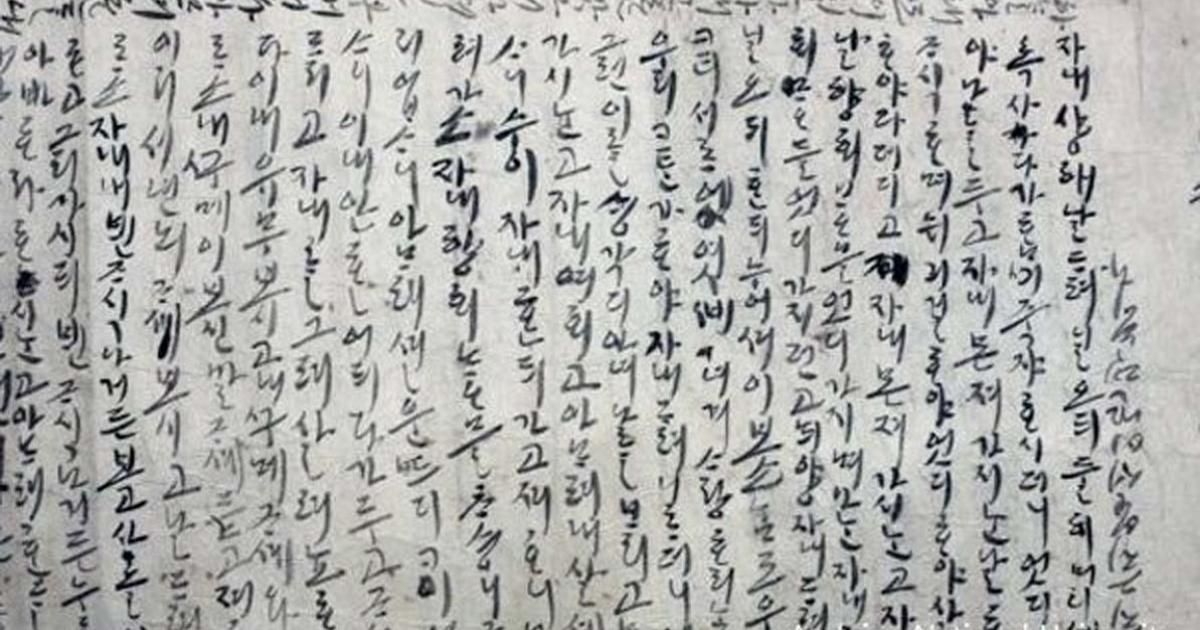 자내 샹해 날ᄃᆞ려 닐오ᄃᆡ 둘히 머리
록 사다가 ᄒᆞᆷᄭᅴ 죽쟈 ᄒᆞ시더니 엇디
야 나ᄅᆞᆯ 두고 자내 몬져 가시ᄂᆞᆫ 날ᄒᆞ
ᄌᆞ식ᄒᆞ며 뉘 긔걸ᄒᆞ야 엇디ᄒᆞ야 살
ᄒᆞ야 다 더디고 자내 몬져 가시ᄂᆞᆫ고 자
날 향ᄒᆡ ᄆᆞᄋᆞᄆᆞᆯ 엇디 가지며 나ᄂᆞᆫ 자내
ᄒᆡ ᄆᆞᄋᆞᄆᆞᆯ 엇디 가지던고 ᄆᆡ양 자내ᄃᆞ려
닐오ᄃᆡ ᄒᆞᆫᄃᆡ 누어셔 이보소 ᄂᆞᆷ도 우
ᄀᆞ티 서ᄅᆞ 에엿ᄲᅵ 녀겨 ᄉᆞ랑ᄒᆞ리
우리 ᄀᆞᄐᆞᆫ가 ᄒᆞ야 자내ᄃᆞ려 니ᄅᆞ더니
그런 이ᄅᆞᆯ ᄉᆡᆼ각디 아녀 나ᄅᆞᆯ ᄇᆞ리고
가시ᄂᆞᆫ고 자내 여ᄒᆡ고 아ᄆᆞ려 내 살 셰
ᄉᆞ니 수이 자내 ᄒᆞᆫᄃᆡ 가고져 ᄒᆞ니
려가소 자내 향ᄒᆡ ᄆᆞᄋᆞᄆᆞᆯ ᄎᆞᄉᆡᆼ 니
리 업ᄉᆞ니 아ᄆᆞ려 셜운 ᄠᅳ디 ᄀᆞ이
ᄉᆞ니 이 내 안ᄒᆞᆫ 어ᄃᆡ다가 두고 ᄌᆞ
ᄃᆞ리고 자내ᄅᆞᆯ 그려 살려뇨 ᄒᆞ
다 이 내 유무 보시고 내 ᄭᅮ메 ᄌᆞ셰 와
ᄅᆞ소 내 ᄭᅮ메 이 보신 말 ᄌᆞ셰 듣고져
이리 서 년뇌 ᄌᆞ셰 보시고 날ᄃᆞ려
ᄅᆞ소 자내 내 ᄇᆡᆫ ᄌᆞ식 나거든 보고 사ᄅᆞᆯ
ᄒᆞ고 그리 가시ᄃᆡ ᄇᆡᆫ ᄌᆞ식 나거든 누ᄅᆞᆯ
아바 ᄒᆞ라 ᄒᆞ시ᄂᆞᆫ고 아ᄆᆞ려 ᄒᆞᆫᄃᆞᆯ